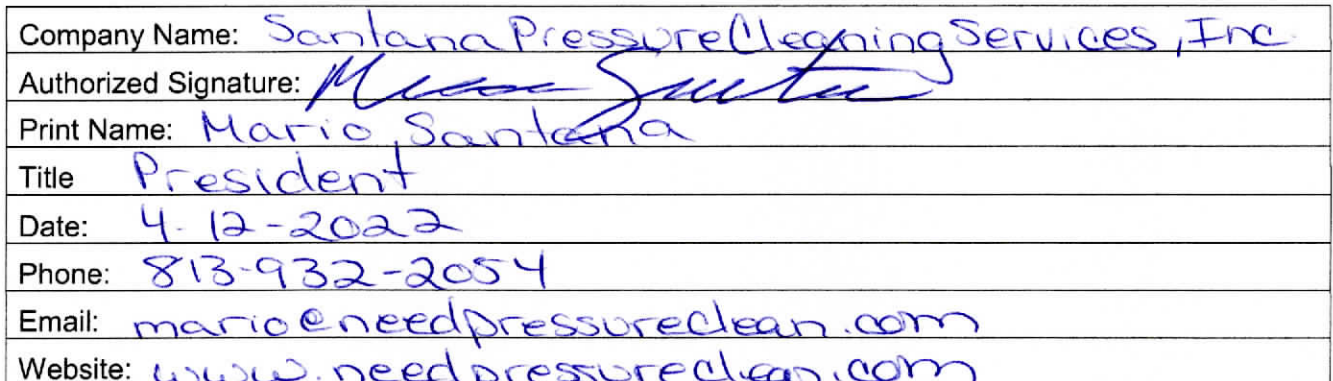 Company Name: Santana Pressure Cleaning Services, Inc.
Authorized Signature: Mario Santana
Print Name: Mario Santana
Title President
Date: 4-12-2022
Phone: 813-932-2054
Email: mario@needpressureclean.com
Website: www.needpressureclean.com